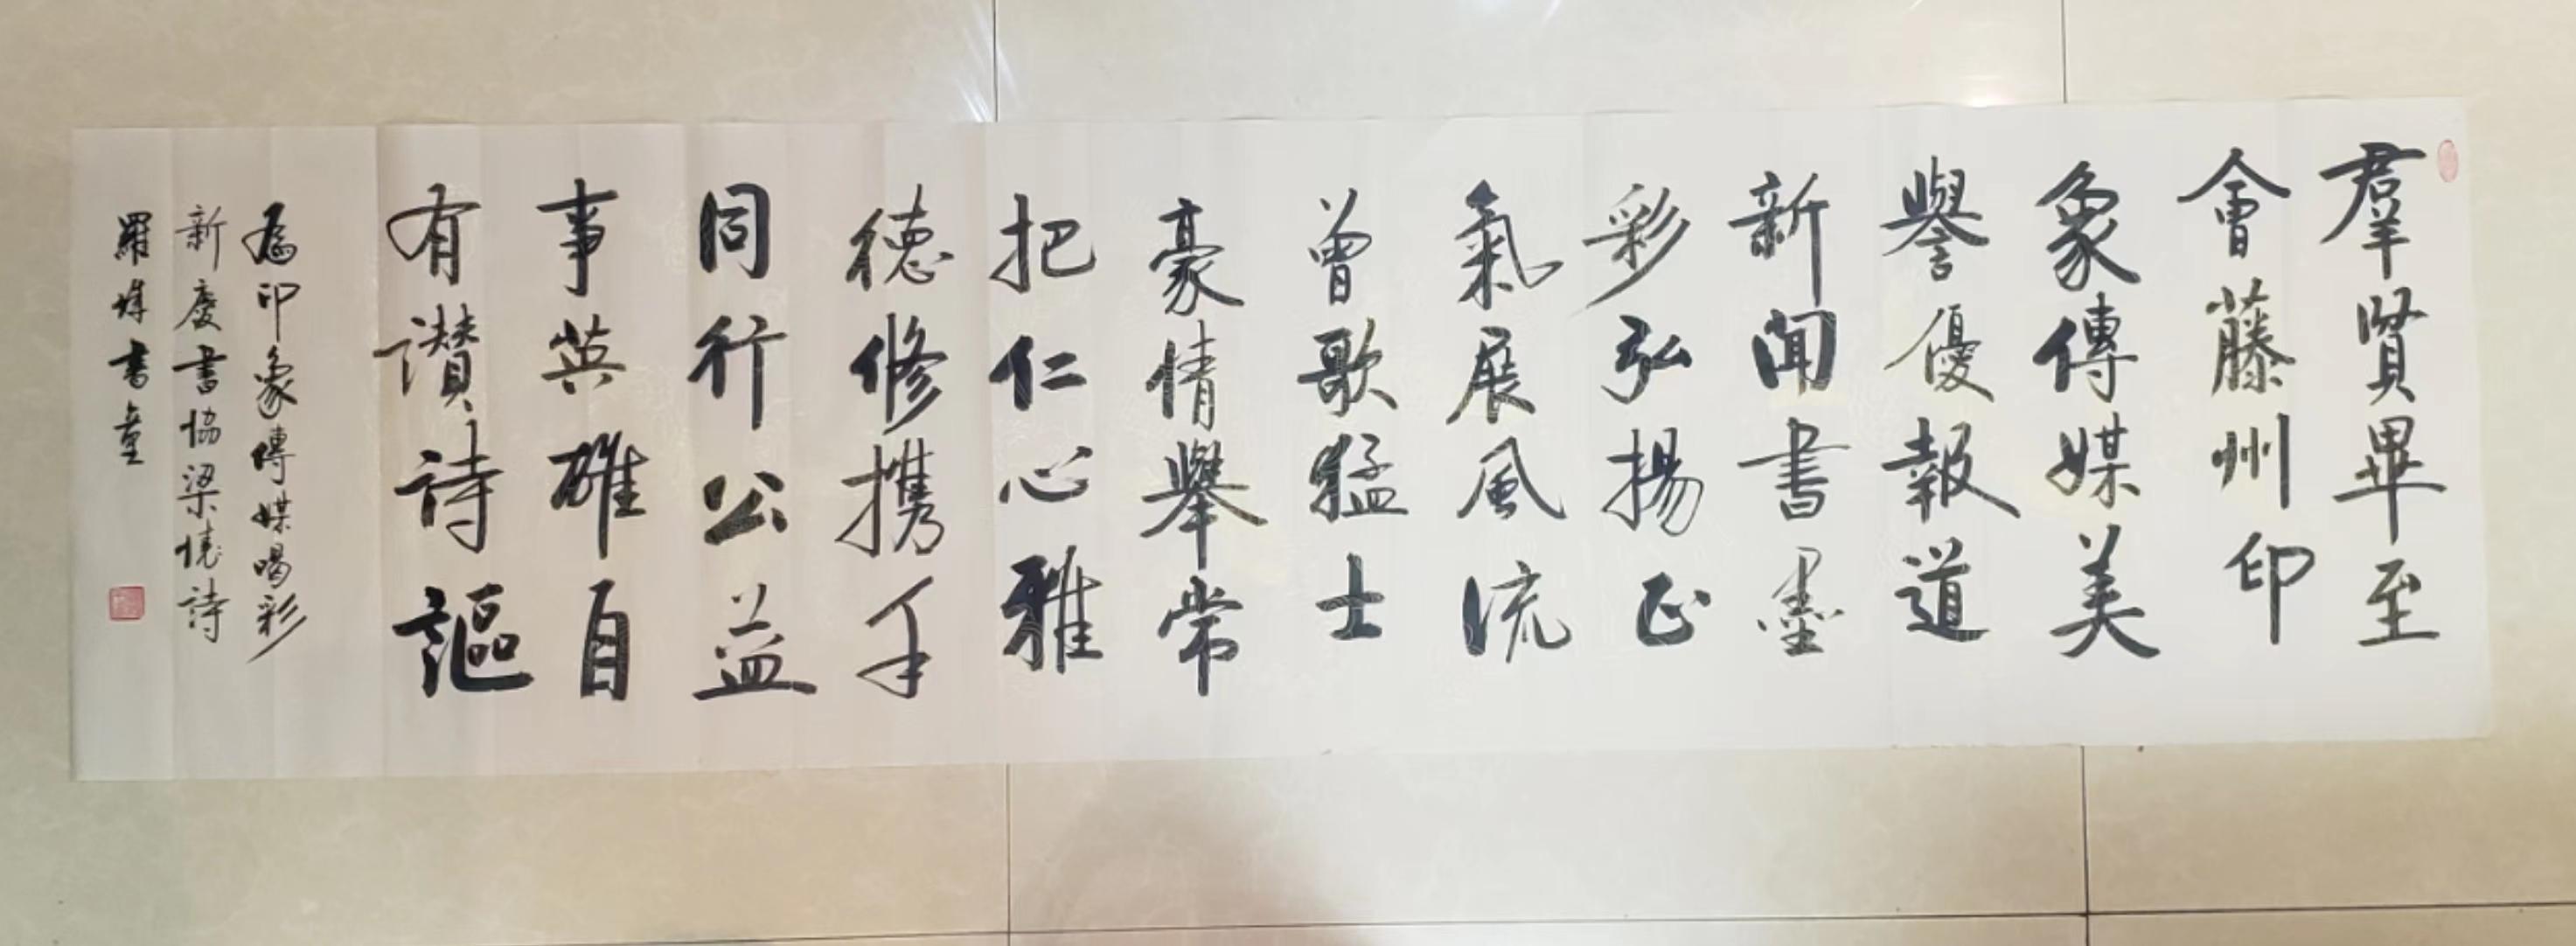 羣賢畢至
會藤州印
象傳媒美
譽優報道
新聞書墨
彩弘揚正
氣展風流
曾歌猛士
豪情舉常
把仁心雅
德修攜手
同行公益
事英雄自
有讚詩謳
為印象傳媒喝彩
新慶書協梁憶詩
羅 書童